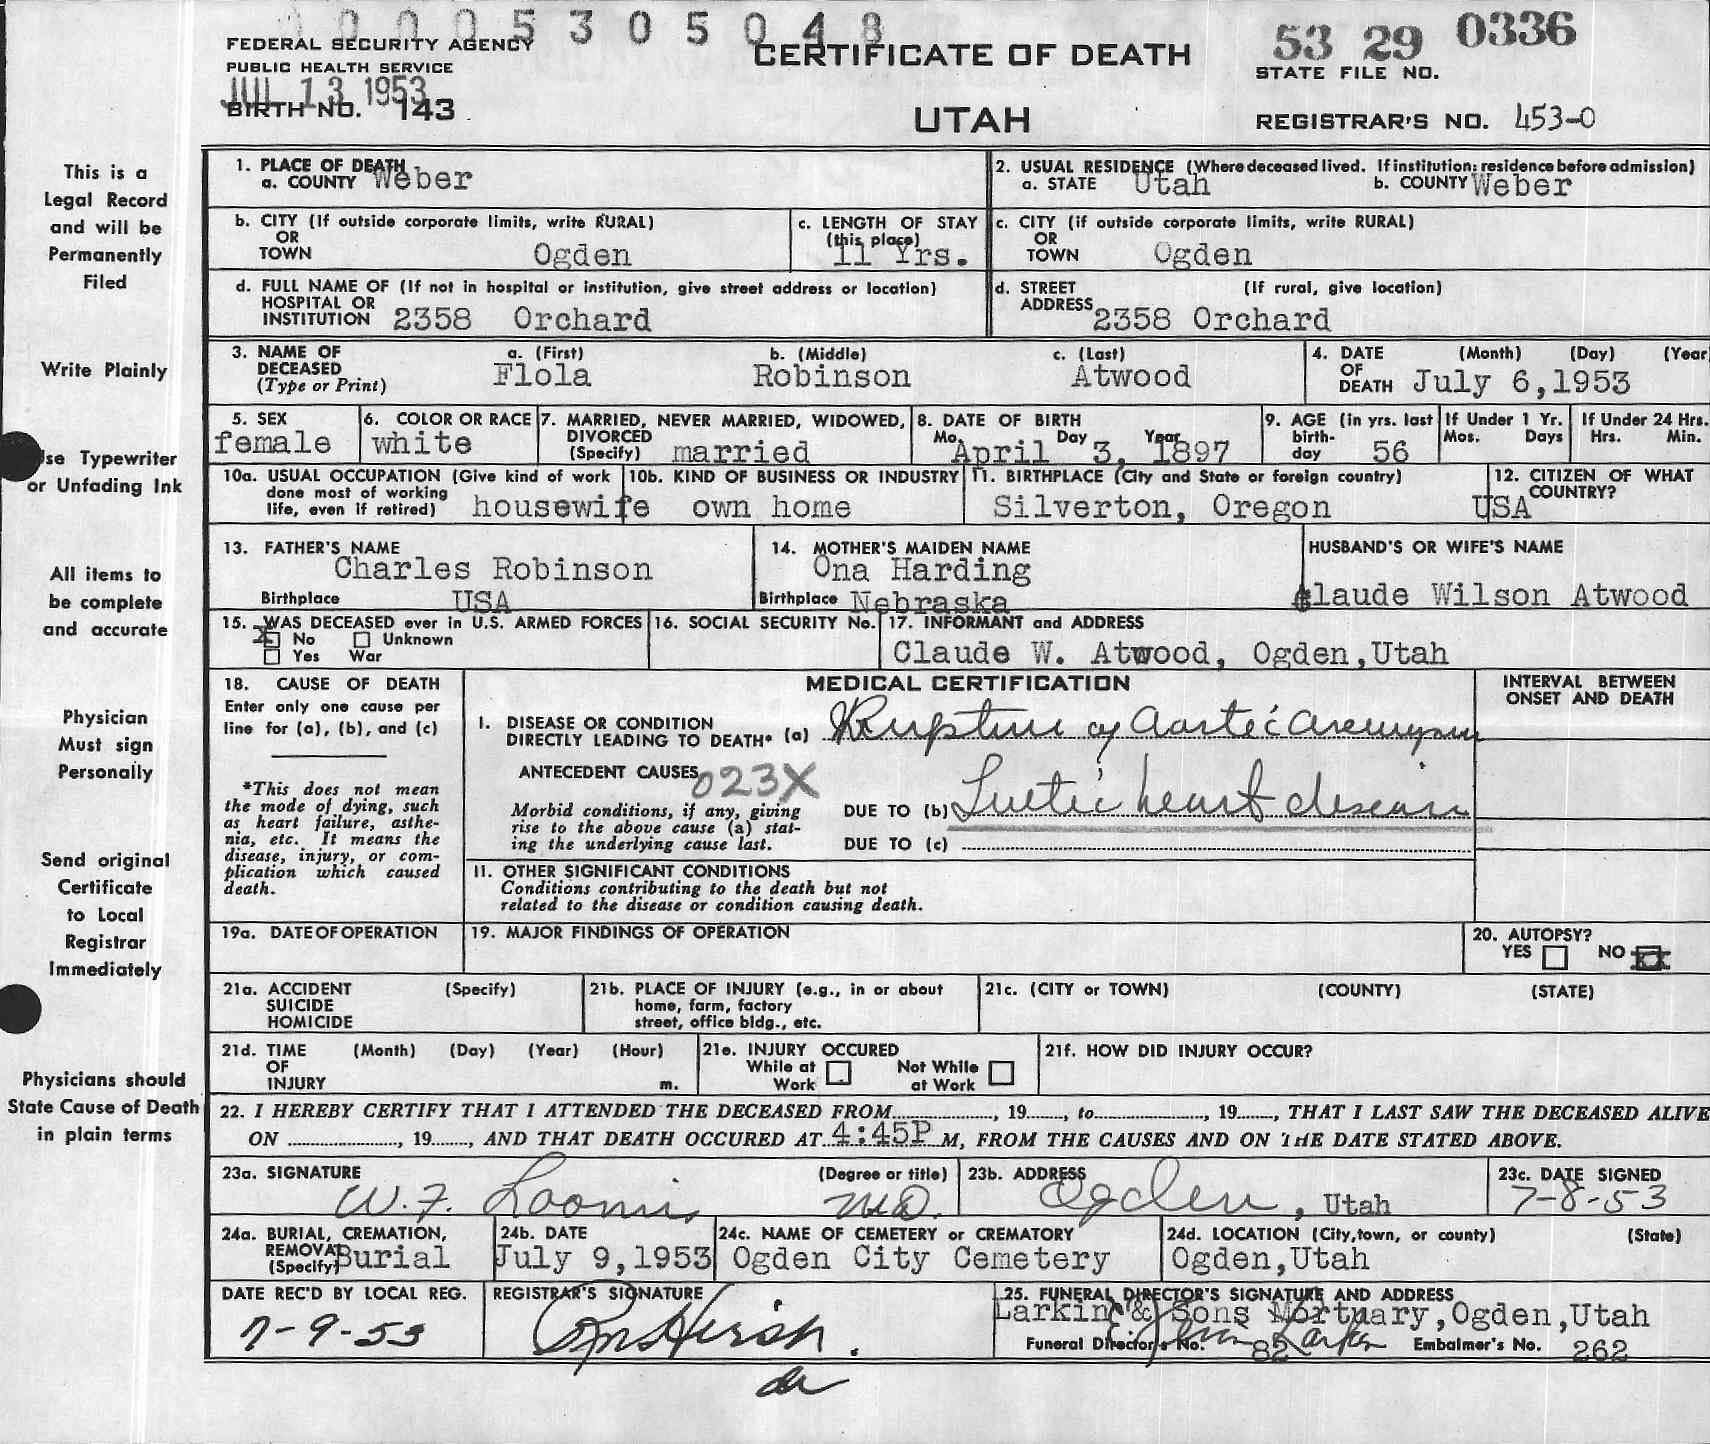 0005305048
FEDERAL SECURITY AGENCY
PUBLIC HEALTH SERVICE
JUL 13 1953
BIRTH NO. 143
CERTIFICATE OF DEATH
UTAH
53 29 0336
STATE FILE NO.
REGISTRAR'S NO. 453-0
This is a
Legal Record
and will be
Permanently
Filed
Write Plainly
Use Typewriter
or Unfading Ink
All items to
be complete
and accurate
Physician
Must sign
Personally
Send original
Certificate
to Local
Registrar
Immediately
Physicians should
State Cause of Death
in plain terms
1. PLACE OF DEATH
a. COUNTY Weber
2. USUAL RESIDENCE (Where deceased lived. If institution: residence before admission)
a. STATE Utah b. COUNTY Weber
b. CITY (If outside corporate limits, write RURAL)
OR
TOWN Ogden
c. LENGTH OF STAY
(this place)
11 Yrs.
c. CITY (if outside corporate limits, write RURAL)
OR
TOWN Ogden
d. FULL NAME OF (If not in hospital or institution, give street address or location)
HOSPITAL OR
INSTITUTION 2358 Orchard
d. STREET (If rural, give location)
ADDRESS 2358 Orchard
3. NAME OF DECEASED (Type or Print)
a. (First) b. (Middle) c. (Last)
Flola Robinson Atwood
4. DATE OF DEATH (Month) (Day) (Year
July 6,1953
5. SEX
female
6. COLOR OR RACE
white
7. MARRIED, NEVER MARRIED, WIDOWED,
DIVORCED
(Specify) married
8. DATE OF BIRTH
Mo. Day Year
April 3, 1897
9. AGE (in yrs. last
birth-
day 56
If Under 1 Yr.
Mos. Days
If Under 24 Hrs.
Hrs. Min.
10a. USUAL OCCUPATION (Give kind of work
done most of working
life, even if retired) housewife
10b. KIND OF BUSINESS OR INDUSTRY
own home
11. BIRTHPLACE (City and State or foreign country)
Silverton, Oregon
12. CITIZEN OF WHAT
COUNTRY?
USA
13. FATHER'S NAME
Charles Robinson
Birthplace USA
14. MOTHER'S MAIDEN NAME
Ona Harding
Birthplace Nebraska
HUSBAND'S OR WIFE'S NAME
Claude Wilson Atwood
15. WAS DECEASED ever in U.S. ARMED FORCES
X No Unknown
Yes War
16. SOCIAL SECURITY No.
17. INFORMANT and ADDRESS
Claude W. Atwood, Ogden,Utah
18. CAUSE OF DEATH
Enter only one cause per
line for (a), (b), and (c)
*This does not mean
the mode of dying, such
as heart failure, asthe-
nia, etc. It means the
disease, injury, or com-
plication which caused
death.
MEDICAL CERTIFICATION
INTERVAL BETWEEN
ONSET AND DEATH
I. DISEASE OR CONDITION
DIRECTLY LEADING TO DEATH* (a) Rupture of Aortic Aneurysm
ANTECEDENT CAUSES 023X
Morbid conditions, if any, giving
rise to the above cause (a) stat-
ing the underlying cause last.
DUE TO (b) Luetic heart disease
DUE TO (c)
II. OTHER SIGNIFICANT CONDITIONS
Conditions contributing to the death but not
related to the disease or condition causing death.
19a. DATE OF OPERATION
19. MAJOR FINDINGS OF OPERATION
20. AUTOPSY?
YES NO X
21a. ACCIDENT (Specify)
SUICIDE
HOMICIDE
21b. PLACE OF INJURY (e.g., in or about
home, farm, factory
street, office bldg., etc.
21c. (CITY or TOWN) (COUNTY) (STATE)
21d. TIME (Month) (Day) (Year) (Hour)
OF
INJURY m.
21e. INJURY OCCURED
While at Work Not While at Work
21f. HOW DID INJURY OCCUR?
22. I HEREBY CERTIFY THAT I ATTENDED THE DECEASED FROM............, 19......, to............, 19......, THAT I LAST SAW THE DECEASED ALIVE
ON ............, 19......, AND THAT DEATH OCCURED AT 4:45P M, FROM THE CAUSES AND ON THE DATE STATED ABOVE.
23a. SIGNATURE (Degree or title)
W. F. Loomis M.D.
23b. ADDRESS
Ogden, Utah
23c. DATE SIGNED
7-8-53
24a. BURIAL, CREMATION,
REMOVAL
(Specify) Burial
24b. DATE
July 9,1953
24c. NAME OF CEMETERY or CREMATORY
Ogden City Cemetery
24d. LOCATION (City,town, or county) (State)
Ogden,Utah
DATE REC'D BY LOCAL REG.
7-9-53
REGISTRAR'S SIGNATURE
25. FUNERAL DIRECTOR'S SIGNATURE AND ADDRESS
Larkin & Sons Mortuary,Ogden,Utah
Funeral Director's No. 82 Embalmer's No. 262